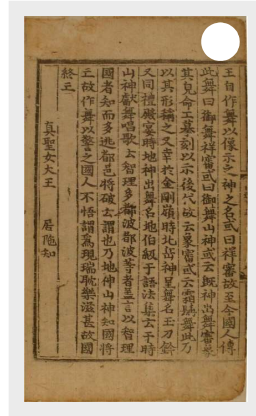 王自作舞以像示之神之名或曰祥審故至今國人傳
此舞曰御舞祥審或曰御舞山神或云旣神出舞審象
其皃命工摹刻以示後代故云象審或云霜髥舞此乃
以其形稱之又幸於金剛嶺時北岳神呈舞名玉刀鈐
又同禮殿宴時地神出舞名地伯級干語法集云于時
山神獻舞唱歌云智理多都波都波等者盖言以智理
國者知而多逃都邑將破云謂也乃地神山神知國將
亡故作舞以警之國人不悟謂爲現瑞耽樂滋甚故國
終亡
真聖女大王 居陁知